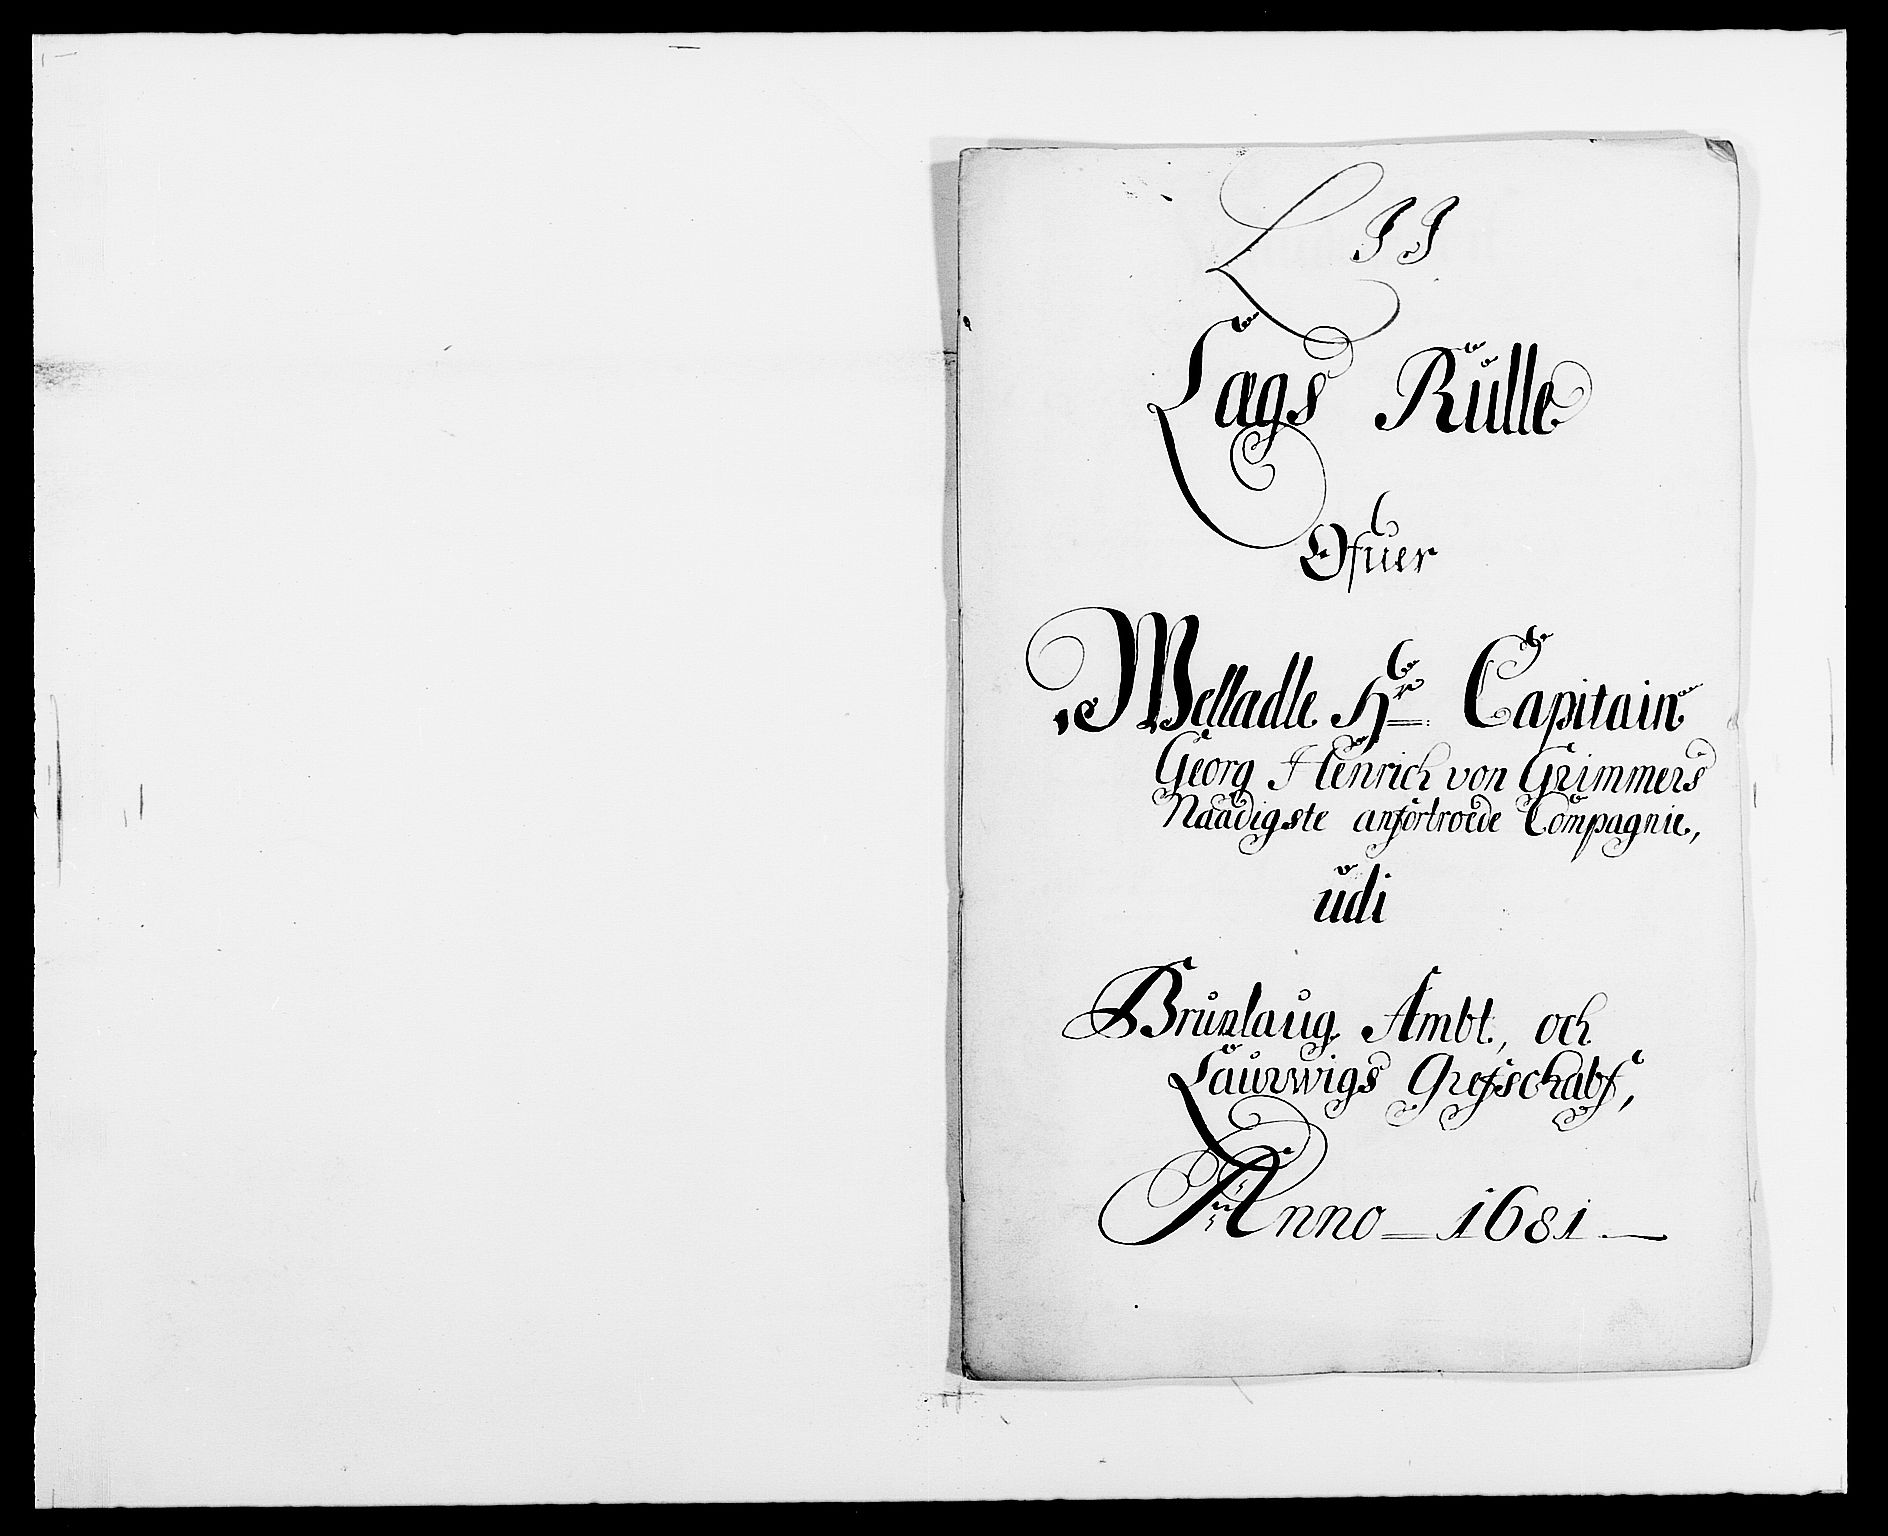 L JJ
Lags Rulle
Ofuer
Welladle Hr Capitain
Georg Henrich von Grimmers
Naadigste anfortroede Compagnie,
udi
Brunlaug Ambt, och
Laurwigs Grefschabf,
Anno 1681